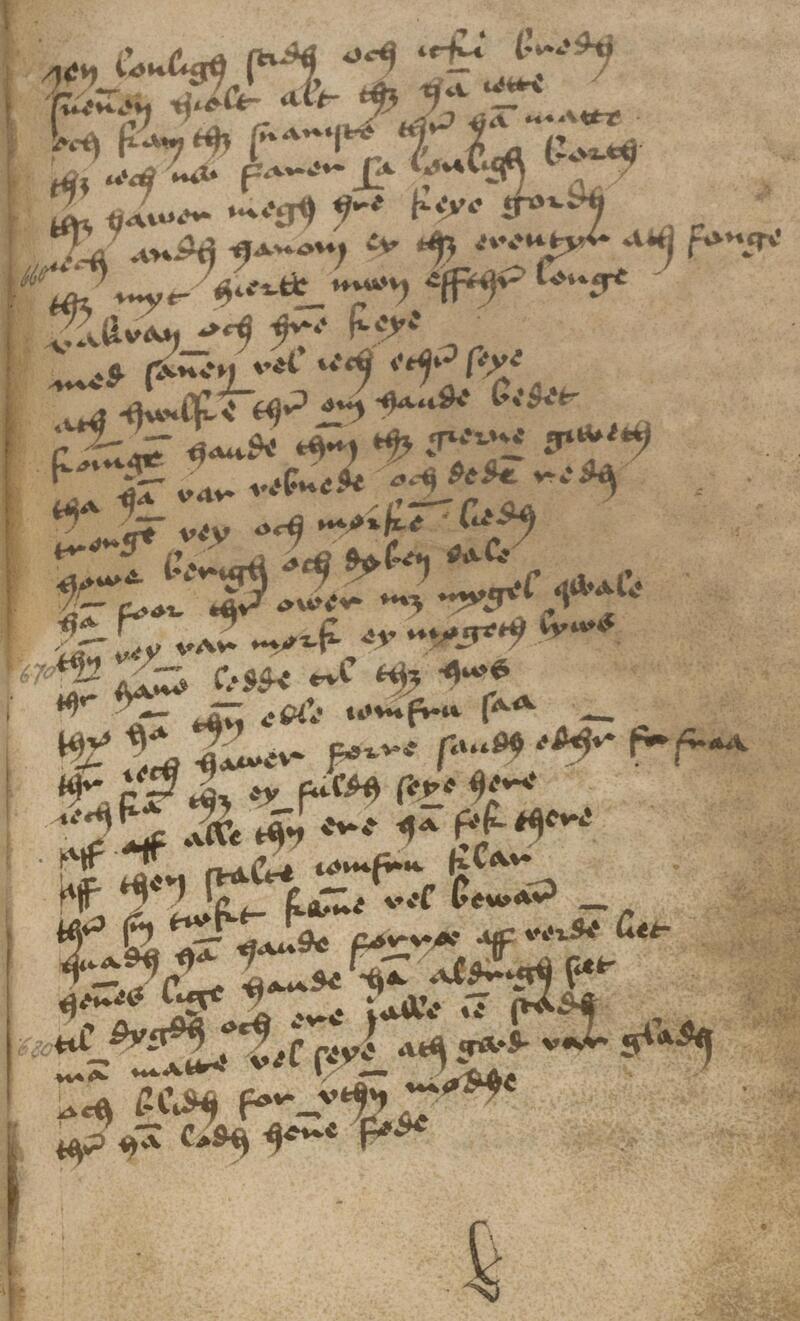 jen louligh stidh och icki bredh
suenēn hiolt alt thz hā iette
och kam thz snariste thr̄ hā matte
thz iech nw farer sa louligh borth
thz hawer megh hr̄e keye gordh
660 iech andh hanom ey thz eventyr ath fange
thz myt hierte mwn effthr̄ lenge
valvan och hr̄e keye
med sanēn vel iech ethr̄ seye
ath hwilkē thr̄ om hande bedet
koi̅ngē hande thm̄ thz gierne giweth
tha hā var rebuede och dedē redh
trongē vey och mørkē liedh
høwe berigh och dyben dale
hā foor thr̄ ower mz mygel qwale
670 thn̄ vey var mørk ey møgeth lyws
thr̄ hanē ledde til thz hws
thr̄ hā thn̄ edle iomfru saa
thr̄ iech hawer førre saudh edhr̄ fraa
iech kā thz ey fuldh seye here
aff aff alle thn̄ ere hā fek there
aff then stalte iomfru klar
thr̄ sin twkt kwn̄e vel bewar̄
huadh hā hande førræ aff verdē liet
hen̄es lige hande hā aldrigh seet
til dygdh och ere j alle iē stadh
680 mā matte vel seye ath gwd var gladh
och blidh for vthn̄ mødhe
thr̄ hā lodh hen̄e føde